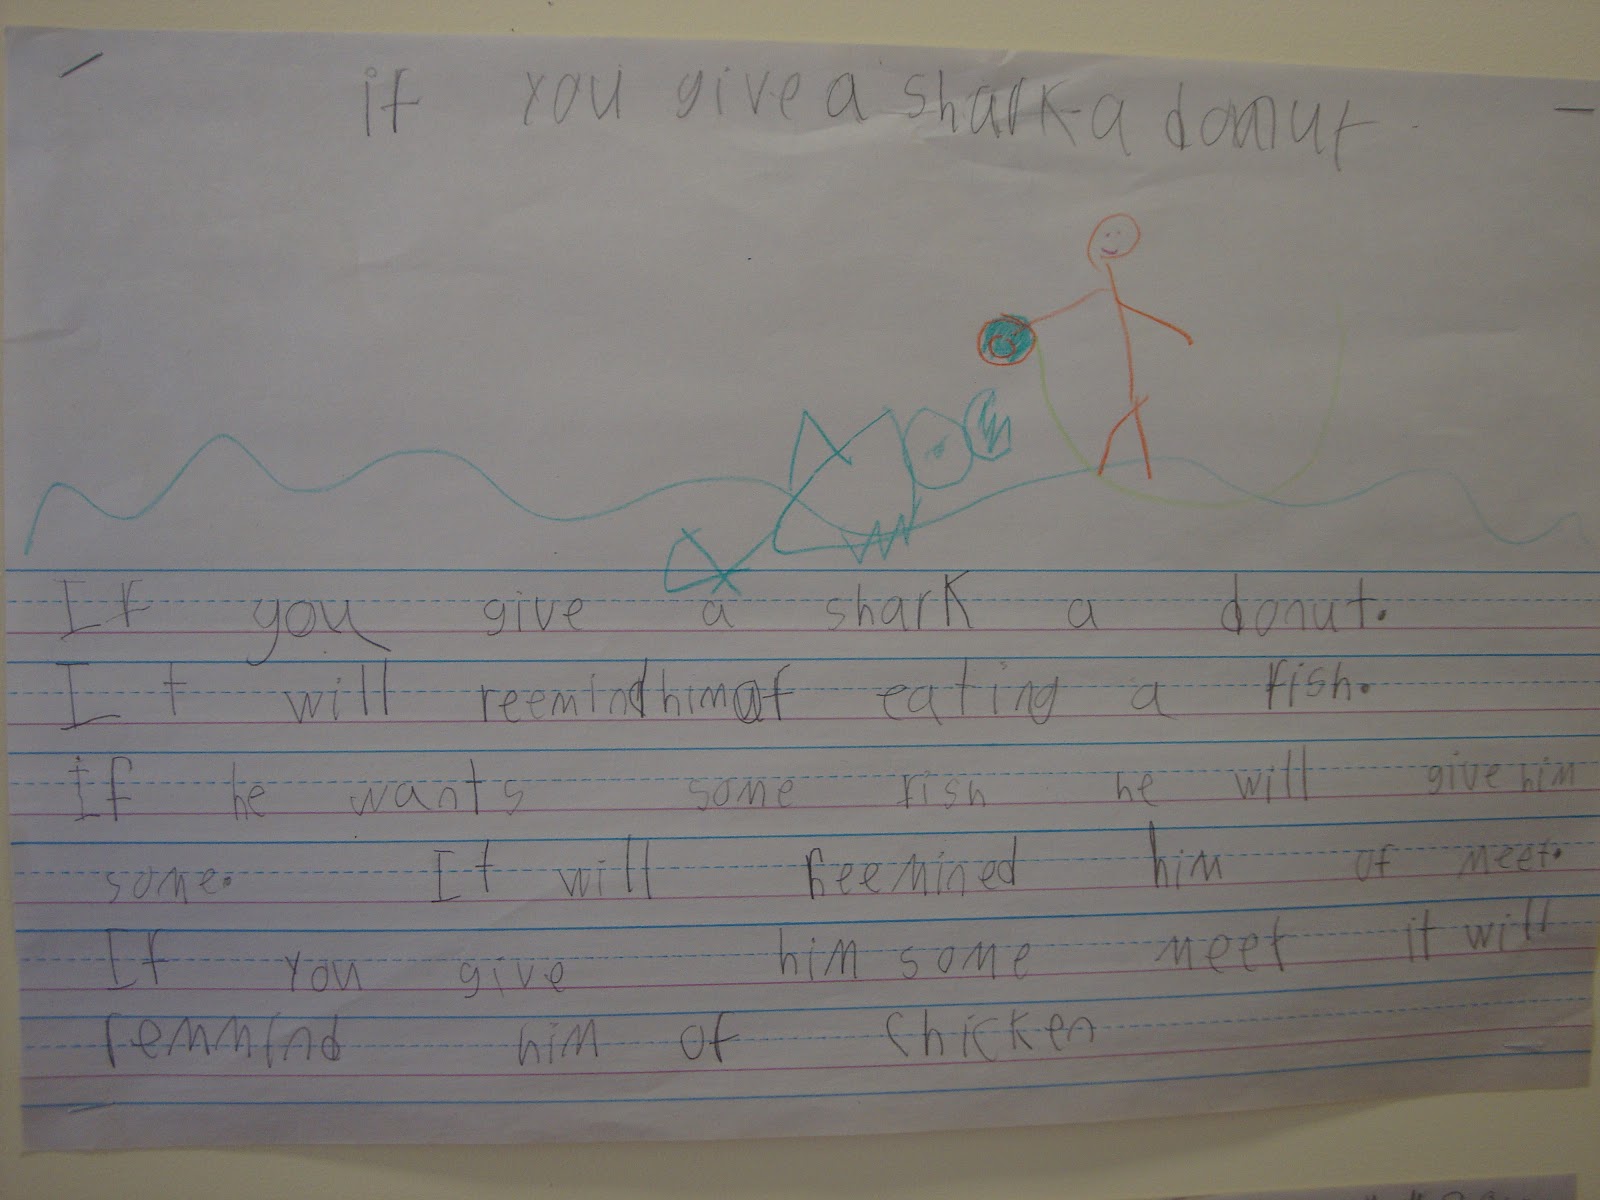 if you give a shark a donut
If you give a shark a donut.
It will reemind him of eating a fish.
If he wants some fish he will give him
some. It will reemined him of meet.
If you give him some meet it will
remmind him of chicken